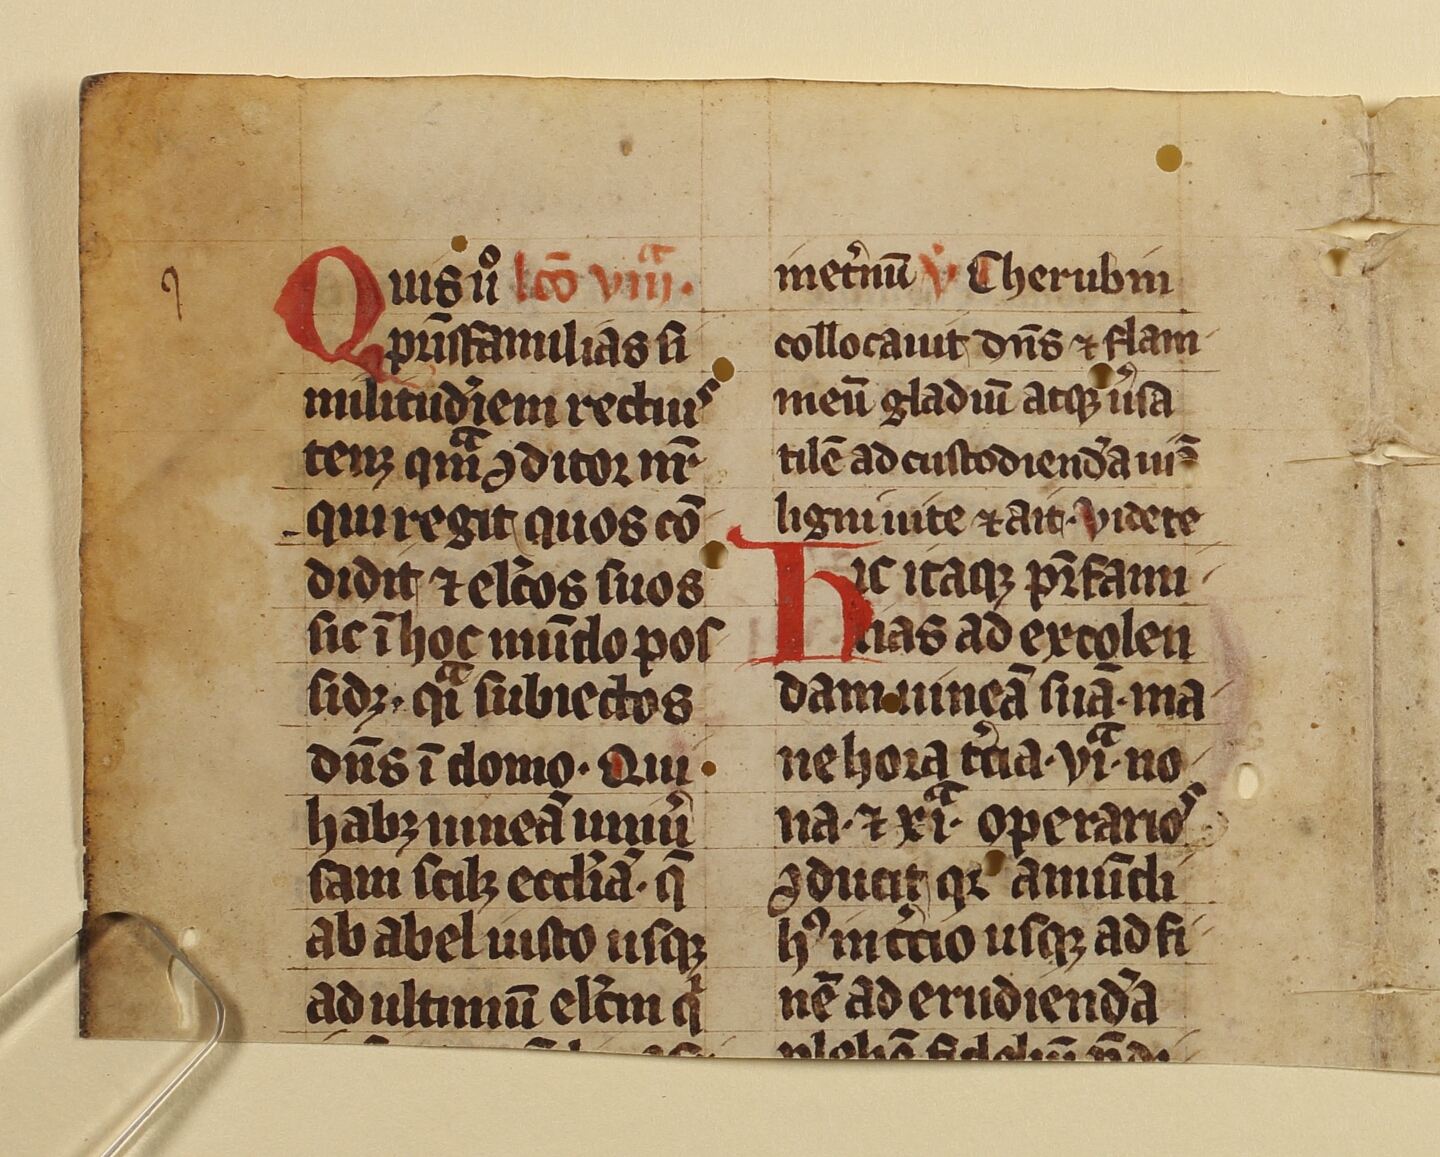 Quis ů lc̄o viiiᵃ.
pr̄isfamilias si
militud̓iem rectiuˢ
tenꝫ qͣm ꝯditor nr̄
qui regit quos cō
didit ⁊ elc̄os suos
sic ī hoc mūdo pos
sidꝫ. qͣi subiectos
dn̄s ī domo. Qui
habꝫ uineā uniu̓
sam scilꝫ eccl̓iā. q̄
ab abel iusto usqꝫ
ad ultimū elc̄m q̓
inet̓nū v̓ Cherubin
collocauit dn̄s ⁊ flam
meū gladiū atqꝫ u̓sa
tilē ad custodiend̓a uiā
ligni uite ⁊ ait. Videte
Hic itaqꝫ pr̄fami
lias ad excolen
dam uineā suā. ma
ne hora t̓cia. viᵃ. no
na. ⁊ xiᵃ. operarioˢ
ꝯducit qꝛ a mūdi
hꝰ inic̓cio usqꝫ ad fi
nē ad erudiend̓a
plebē fideliū p̄di